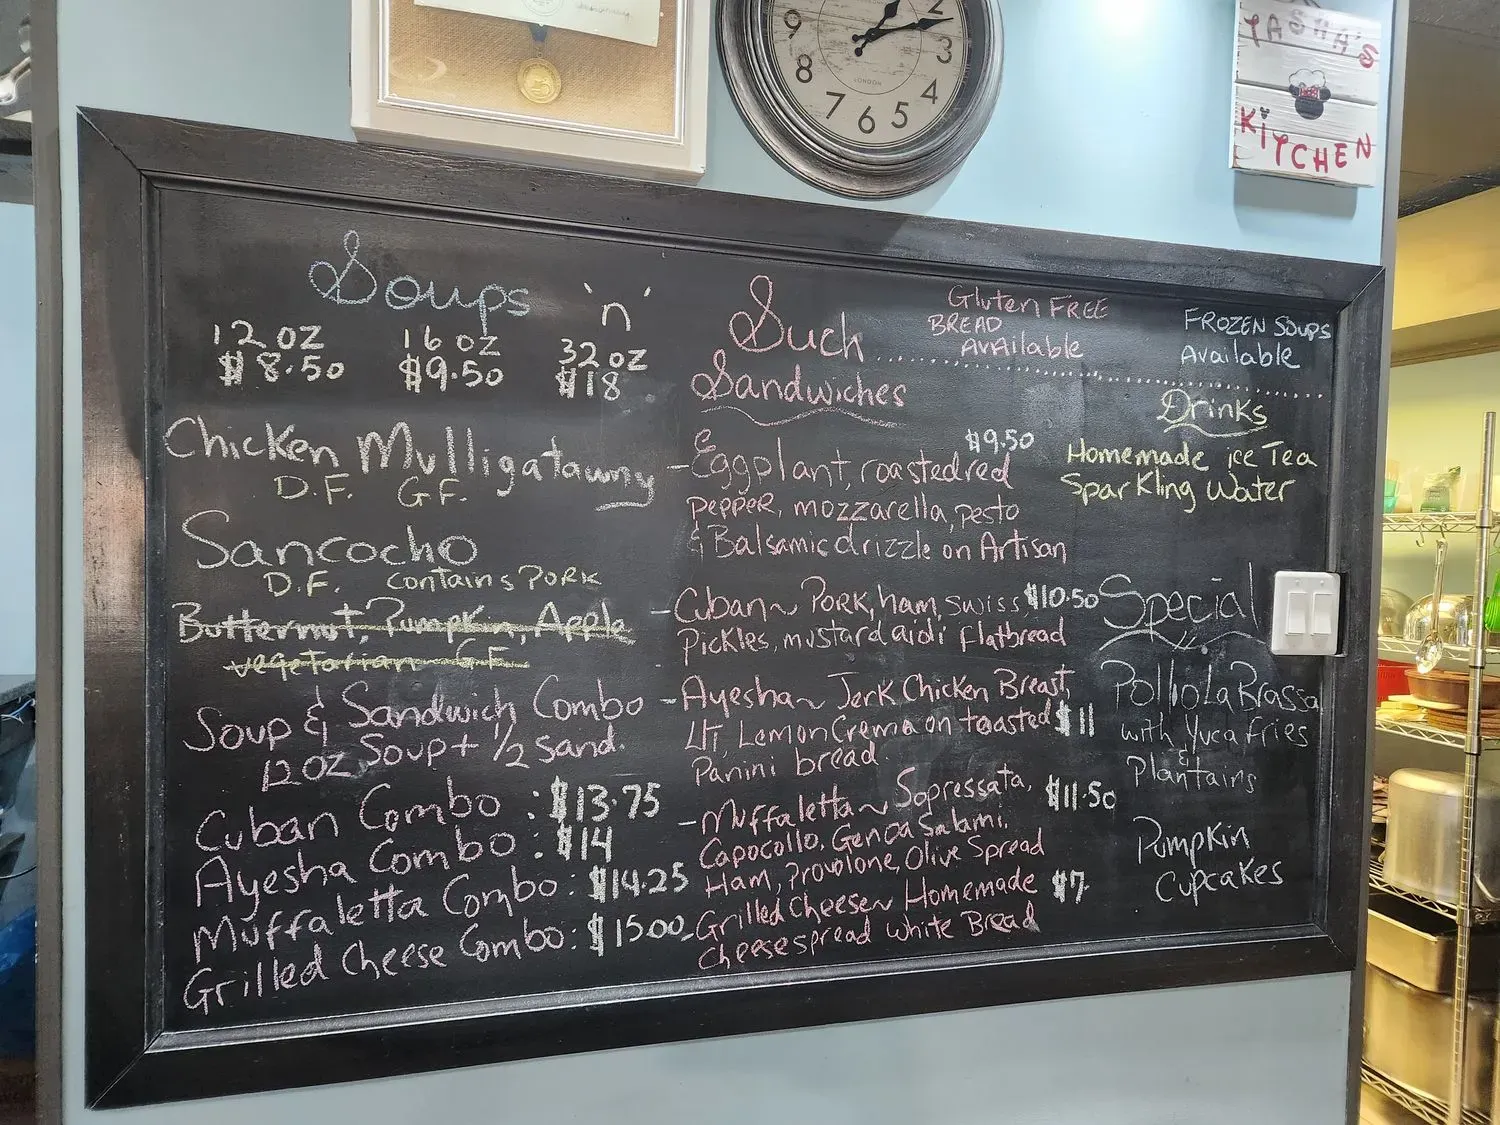 9
2
3
8
4
7
6
5
LONDON
TASHA'S
KiTCHEN
Soups 'n' Such
12 oz
$8.50
16 oz
$9.50
32 oz
$18
Chicken Mulligatawny
D.F. G.F.
Sancocho
D.F. contains PORK
Butternut, Pumpkin, Apple
vegetarian GF
Soup & Sandwich Combo
12oz Soup + 1/2 Sand.
Cuban Combo : $13.75
Ayesha Combo : $14
Muffaletta Combo : $14.25
Grilled Cheese Combo : $15.00
Gluten FREE
BREAD
Available
FROZEN Soups
Available
Sandwiches
$9.50
- Eggplant, roasted red
pepper, mozzarella, pesto
& Balsamic drizzle on Artisan
- Cuban ~ PORK, ham, swiss $10.50
Pickles, mustard aioli flatbread
- Ayesha ~ Jerk Chicken Breast,
L/T, Lemon Crema on toasted $11
Panini bread.
- Muffaletta ~ Sopressata, $11.50
Capocollo, Genoa Salami,
Ham, Provolone, Olive Spread
- Grilled Cheese ~ Homemade $7.
Cheese spread White Bread
Drinks
Homemade ice Tea
Sparkling Water
Special
Pollo La Brassa
with Yuca fries
&
Plantains
Pumpkin
Cupcakes